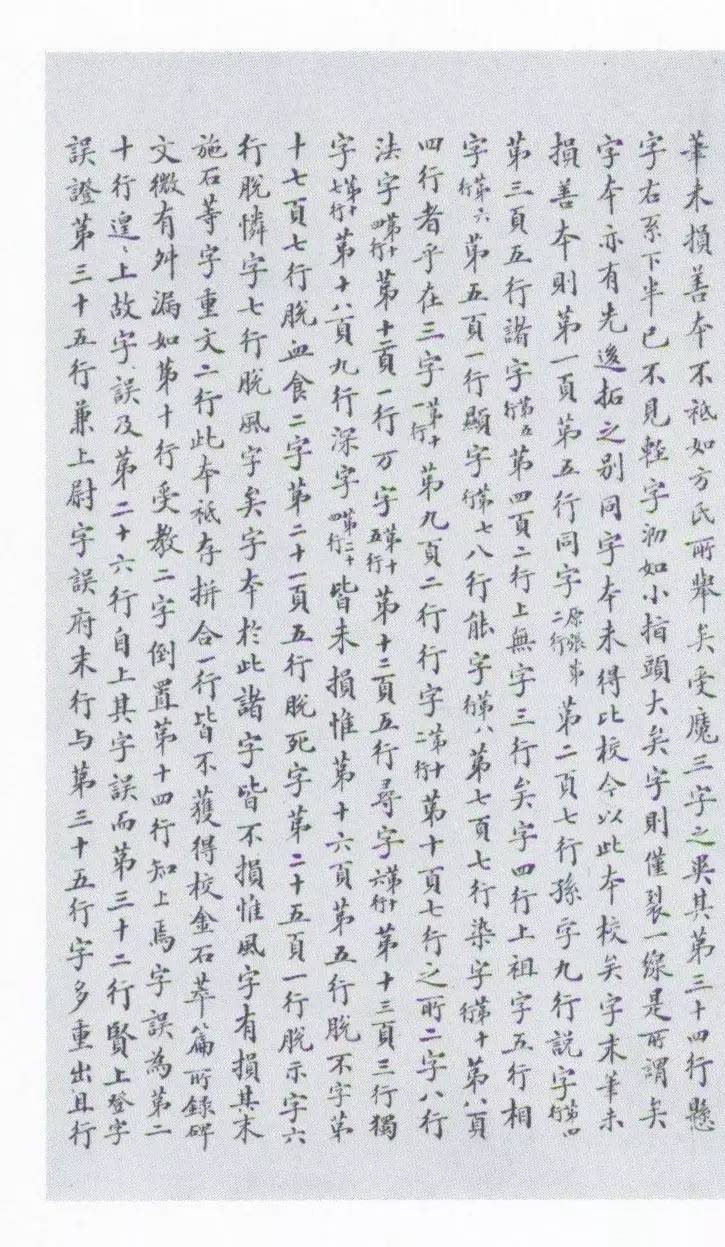 筆未損善本不祗如方氏所舉矣受魔三字之異其第三十四行懸
字右系下半已不見輕字泐如小指頭大矣字則僅裂一線是所謂矣
字本亦有先後拓之别同字本未得比校今以此本校矣字末筆未
損善本則第一頁第五行同字原張第二行第二頁七行孫字九行説字第四行
第三頁五行諸字第五行第四頁二行上無字三行矣字四行上祖字五行相
字第六行第五頁一行顯字第七行八行能字第八行第七頁七行染字第十行第八頁
四行者乎在三字第十一行第九頁二行行字第十二行第十頁七行之所二字八行
法字第十四行第十二頁一行万字第十五行第十二頁五行尋字第十六行第十三頁三行獨
字第十七行第十八頁九行深字第二十四行皆未損惟第十六頁第五行脱不字第
十七頁七行脱血食二字第二十一頁五行脱死字第二十五頁一行脱示字六
行脱憐字七行脱風字矣字本於此諸字皆不損惟風字有損其末
施石等字重文二行此本祗存拼合一行皆不獲得校金石萃篇所錄碑
文微有舛漏如第十行受教二字倒置第十四行知上焉字誤為第二
十行遑〻上故字誤及第二十六行自上其字誤而第三十二行賢上登字
誤證第三十五行兼上尉字誤府末行与第三十五行字多重出且行